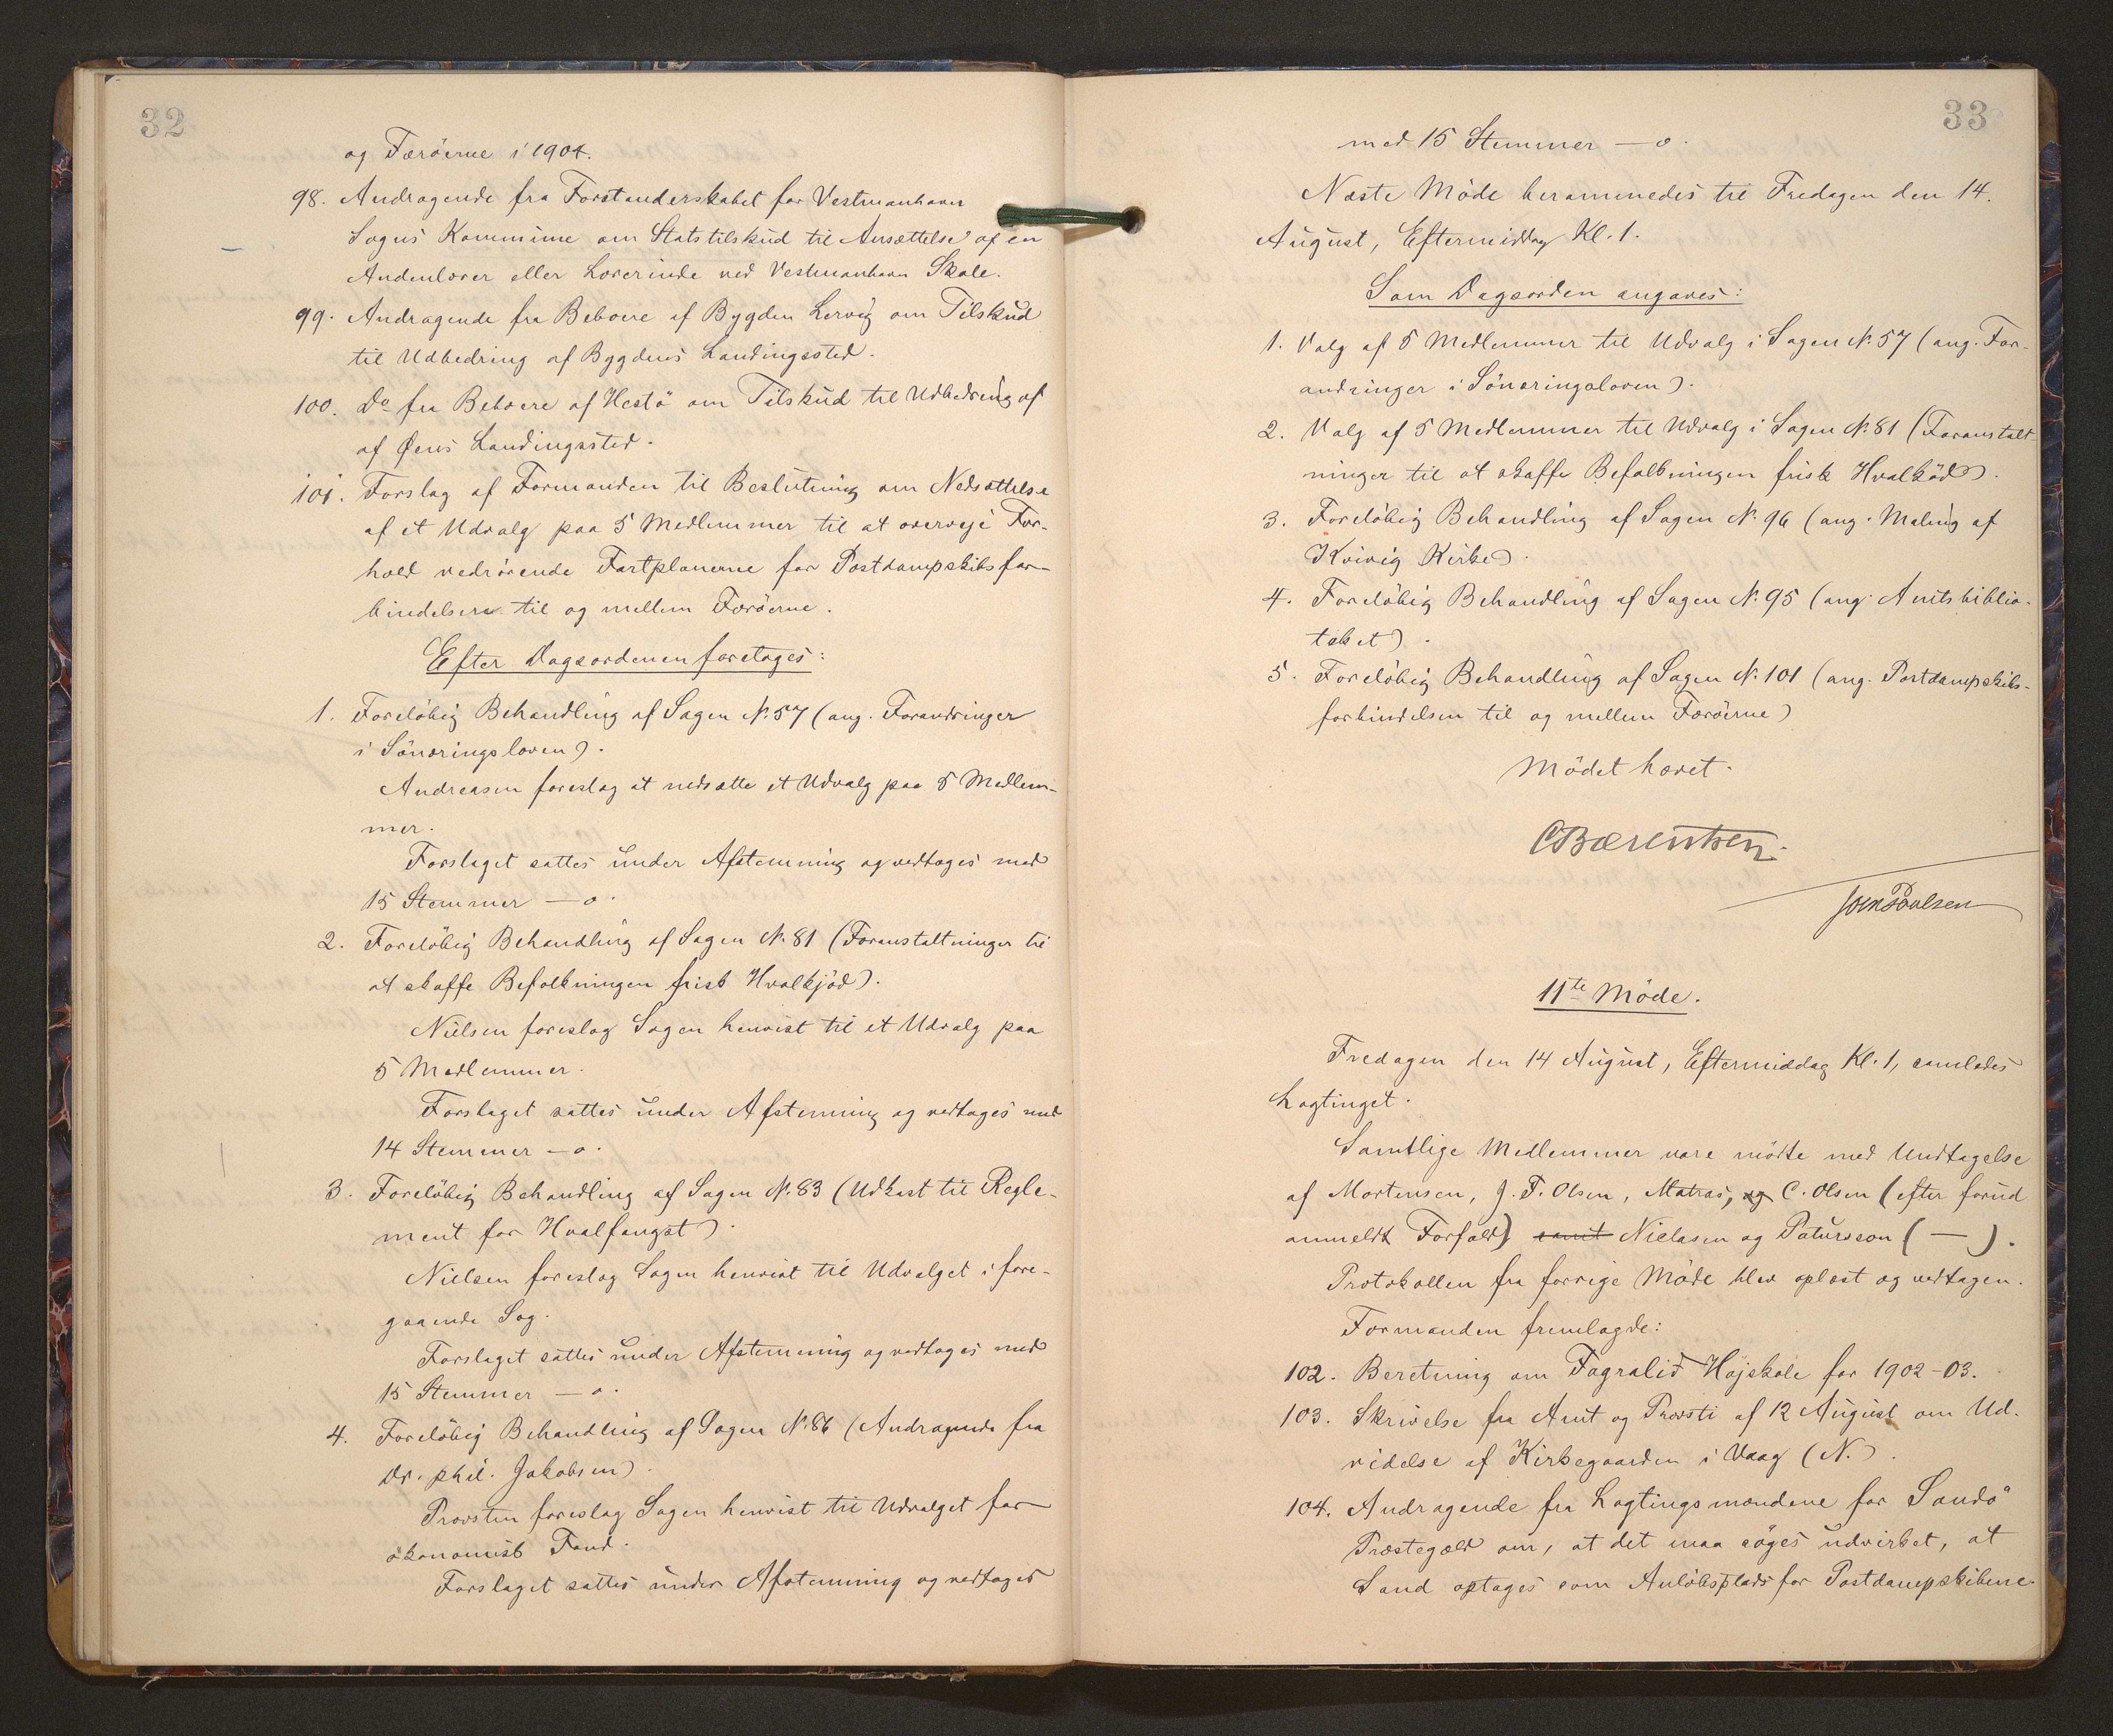 32
og Færöerne i 1904.
98. Andragende fra Forstanderskabet for Vestmanhavn
Sogns Kommune om Statstilskud til Ansættelse af en
Andenlærer eller Lærerinde ved Vestmanhavn Skole.
99. Andragende fra Beboere af Bygden Lervig om Tilskud
til Udbedring af Bygdens Landingssted.
100. Do fra Beboere af Hestö om Tilskud til Udbedring af
af Øens Landingssted.
101. Forslag af Formanden til Beslutning om Nedsættelse
af et Udvalg paa 5 Medlemmer til at overveje For-
hold vedrörende Fartplanerne for Postdampskibsfor-
bindelserne til og mellem Færöerne.
Efter Dagsordenen foretoges:
1. Foreløbig Behandling af Sagen N. 57 (ang. Forandringer
i Sönæringsloven).
Andreasen foreslog at nedsætte et Udvalg paa 5 Medlem-
mer.
Forslaget sattes under Afstemning og vedtoges med
15 Stemmer — o.
2. Foreløbig Behandling af Sagen N. 81 (Foranstaltninger til
at skaffe Befolkningen frisk Hvalkjöd).
Nielsen foreslog Sagen henvist til et Udvalg paa
5 Medlemmer.
Forslaget sattes under Afstemning og vedtoges med
14 Stemmer — o.
3. Foreløbig Behandling af Sagen N. 83 (Udkast til Regle-
ment for Hvalfangst).
Nielsen foreslog Sagen henvist til Udvalget i fore-
gaaende Sag.
Forslaget sattes under Afstemning og vedtoges med
15 Stemmer — o.
4. Foreløbig Behandling af Sagen N. 86 (Andragende fra
Dr. phil. Jakobsen).
Provsten foreslog Sagen henvist til Udvalget for
økonomisk Fond.
Forslaget sattes under Afstemning og vedtoges
33
med 15 Stemmer — o.
Næste Möde berammedes til Fredagen den 14.
August, Eftermiddag Kl. 1.
Som Dagsorden angaves:
1. Valg af 5 Medlemmer til Udvalg i Sagen N. 57 (ang. For-
andringer i Sönæringsloven).
2. Valg af 5 Medlemmer til Udvalg i Sagen N. 81 (Foranstalt-
ninger til at skaffe Befolkningen frisk Hvalköd).
3. Foreløbig Behandling af Sagen N. 96 (ang. Maling af
Kvivig Kirke).
4. Foreløbig Behandling af Sagen N. 95 (ang. Amtsbiblio-
teket).
5. Foreløbig Behandling af Sagen N. 101 (ang. Postdampskibs-
forbindelsen til og mellem Færöerne)
Mödet hævet.
CBærentsen.
Joen Poulsen
11te Möde.
Fredagen den 14 August, Eftermiddag Kl. 1, samledes
Lagtinget.
Samtlige Medlemmer vare mödte med Undtagelse
af Mortensen, J. F. Olsen, Matras, og C. Olsen (efter forud
anmeldt Forfald) samt Nielasen og Patursson (—).
Protokollen fra forrige Möde blev oplæst og vedtagen.
Formanden fremlagde:
102. Beretning om Fagralid Højskole for 1902-03.
103. Skrivelse fra Amt og Provsti af 12 August om Ud-
videlse af Kirkegaarden i Vaag (N.).
104. Andragende fra Lagtingsmændene for Sandö
Præstegæld om, at det maa söges udvirket, at
Sand optages som Anlöbsplads for Postdampskibene